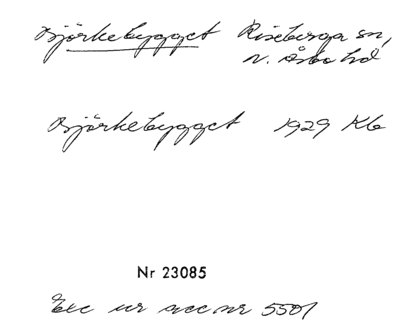 Björkebygget Riseberga sn,
N. Åsbo hd
Björkebygget 1929 Kb
Nr 23085
Exc ur acc nr 5501